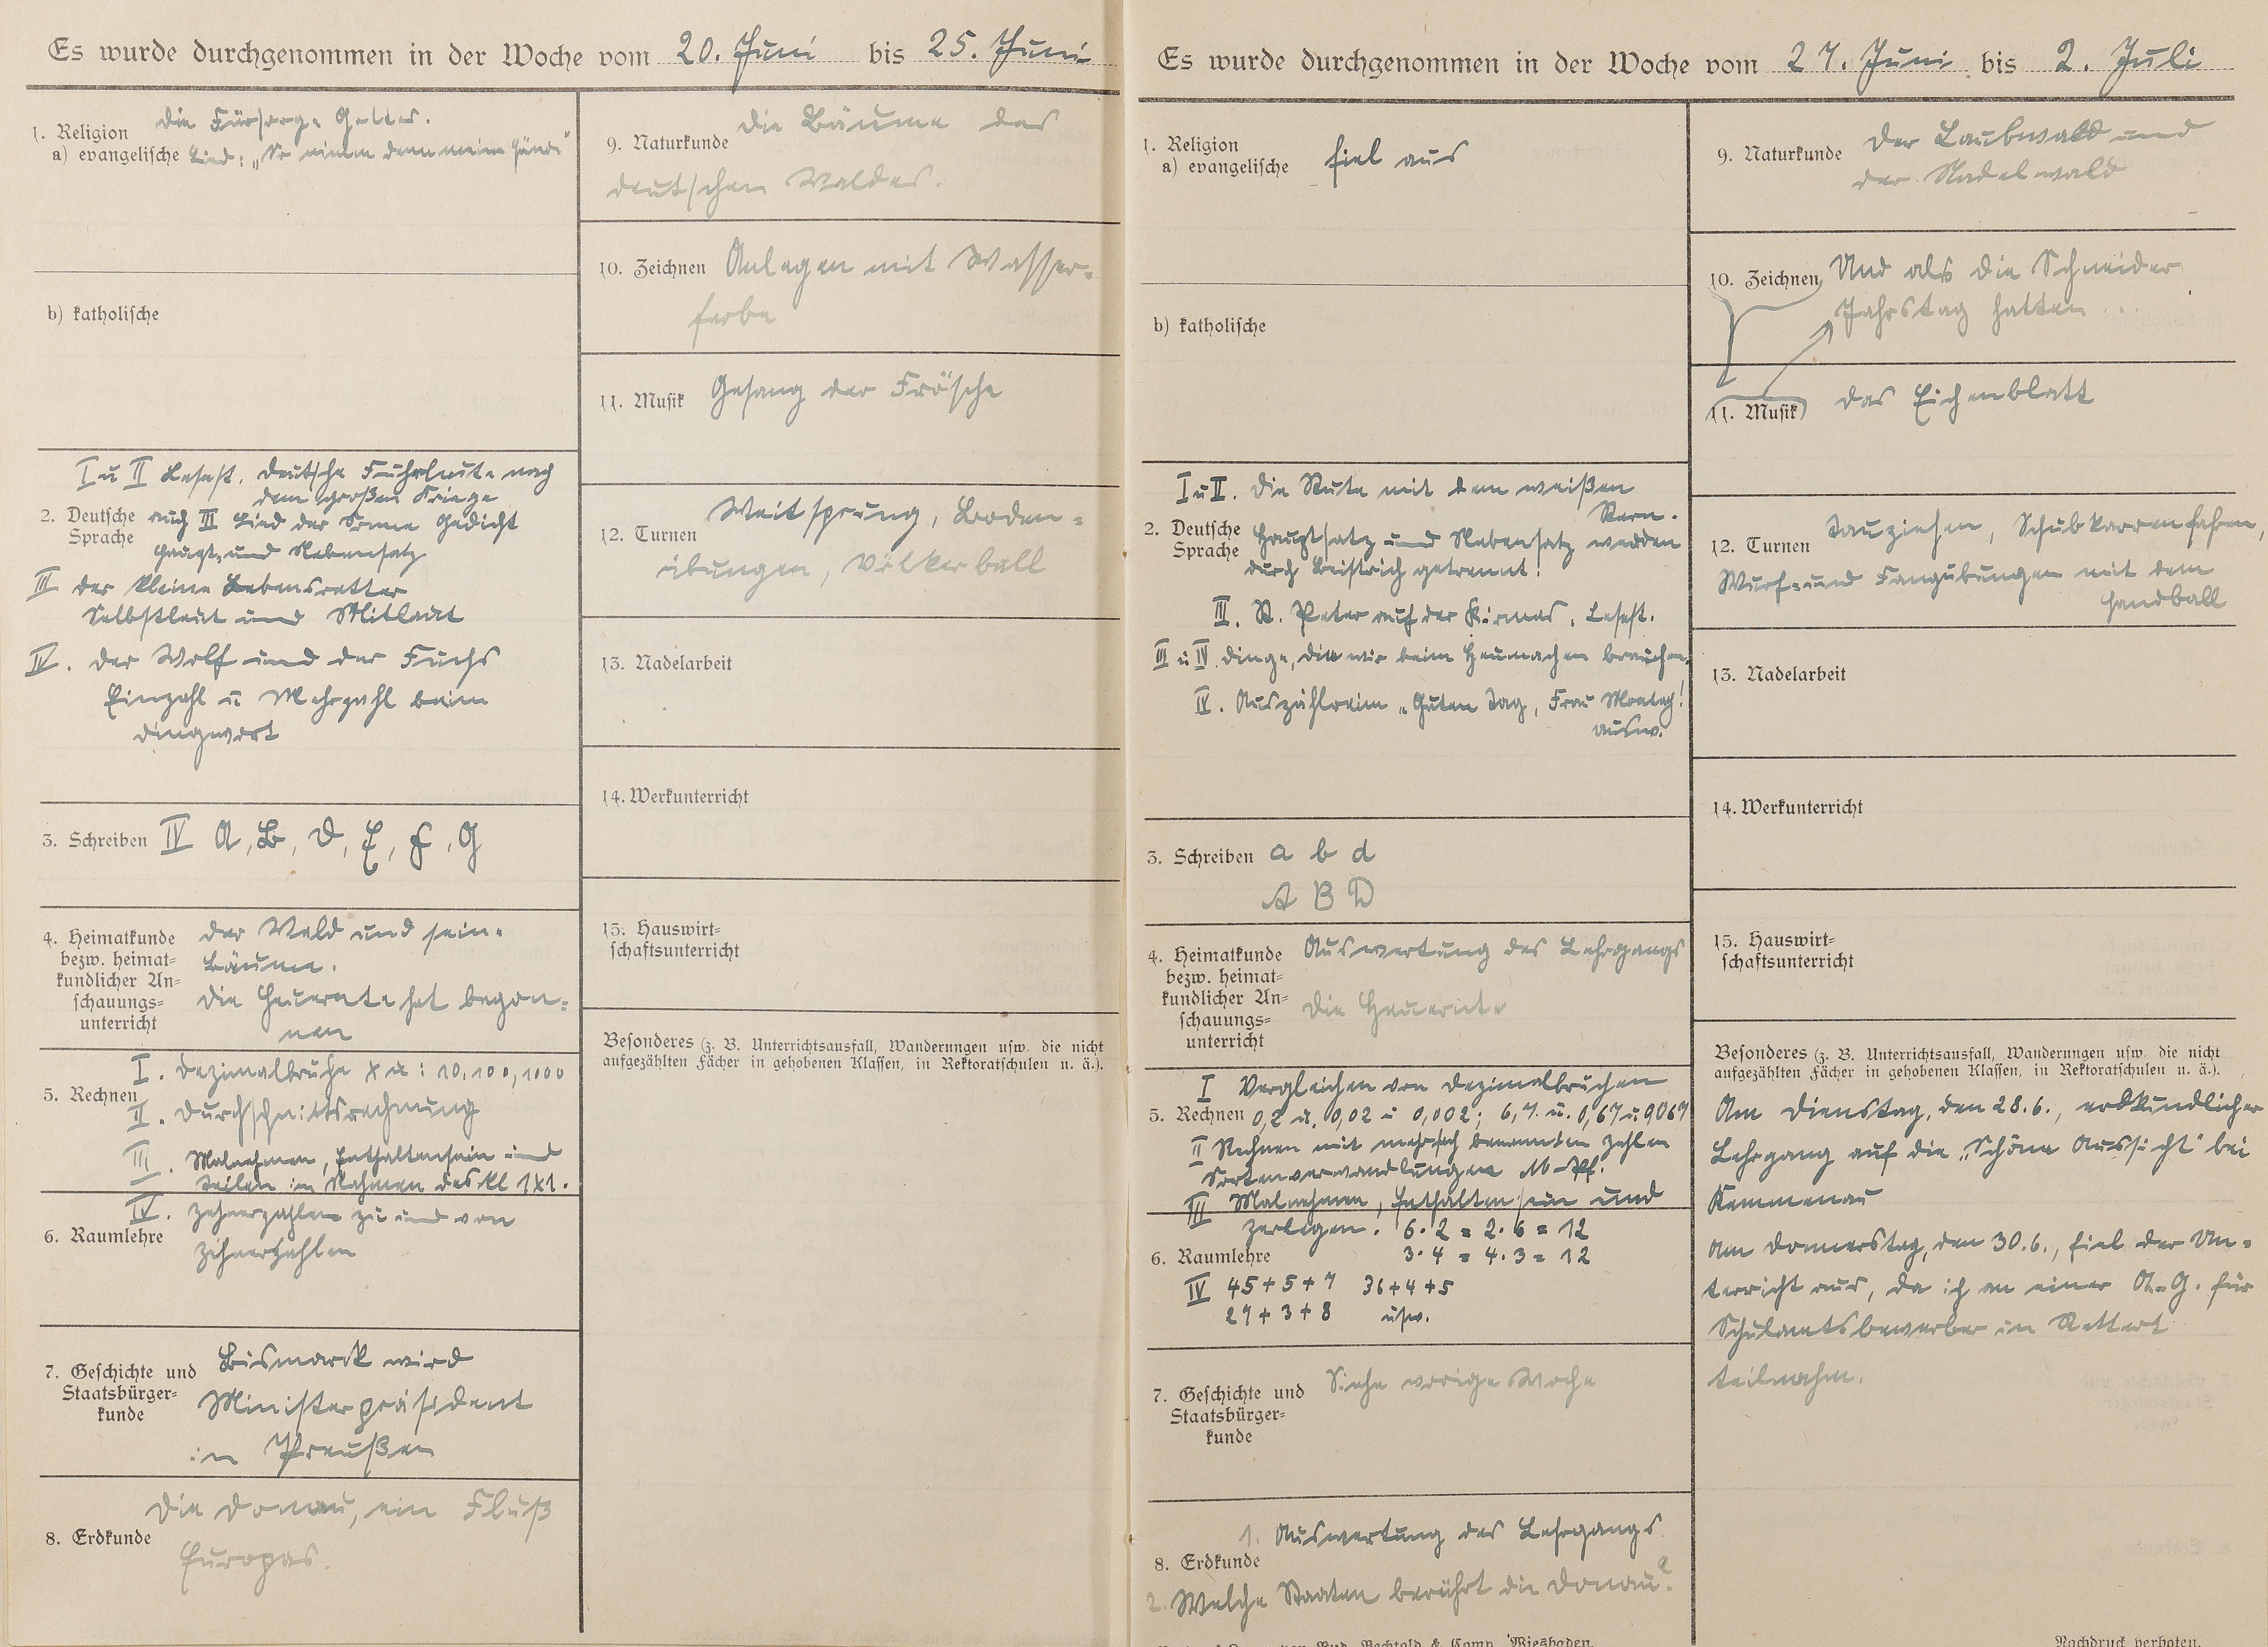 Es wurde durchgenommen in der Woche vom 20. Juni bis 25. Juni
1. Religion
a) evangelische
Die Fürsorge Gottes.
Lied: „So nimm denn meine Hände"
b) katholische
2. Deutsche
Sprache
I u II Lesest. Deutsche Fuhrleute nach
dem großen Kriege
auch III Lied der Sonne Gedicht
Haupt- und Nebensatz
III der kleine Lebensretter
Selbstlaut und Mitlaut
IV. Der Wolf und der Fuchs
Einzahl u Mehrzahl beim
Dingwort
3. Schreiben IV A, B, D, E, F, G
4. Heimatkunde
bezw. heimat=
kundlicher An=
schauungs=
unterricht
Der Wald und seine
Bäume.
Die Heuernte hat begon=
nen
5. Rechnen
I. Dezimalbrüche x u : 10, 100, 1000
II. Durchschnittsrechnung
III. Malnehmen, Enthaltensein und
Teilen im Rahmen des kl 1x1.
6. Raumlehre
IV. Zehnerzahlen zu und von
Zehnerzahlen
7. Geschichte und
Staatsbürger=
kunde
Bismarck wird
Ministerpräsident
in Preußen
8. Erdkunde
Die Donau, ein Fluß
Europas.
9. Naturkunde Die Bäume des
deutschen Waldes.
10. Zeichnen Anlegen mit Wasser=
farbe
11. Musik Gesang der Frösche
12. Turnen Weitsprung, Boden=
übungen, Völkerball
13. Nadelarbeit
14. Werkunterricht
15. Hauswirt=
schaftsunterricht
Besonderes (z. B. Unterrichtsausfall, Wanderungen usw. die nicht
aufgezählten Fächer in gehobenen Klassen, in Rektoratschulen u. ä.).
Es wurde durchgenommen in der Woche vom 27. Juni bis 2. Juli
1. Religion
a) evangelische fiel aus
b) katholische
2. Deutsche
Sprache
I u II. Die Stute mit dem weißen
Stern.
Hauptsatz und Nebensatz werden
durch Beistrich getrennt!
III. St. Peter auf der Kirmes. Lesest.
III u IV Dinge, die wir beim Heumachen brauchen.
IV. Auszählreim „Guten Tag, Frau Montag!
ausw.
3. Schreiben a b d
A B D
4. Heimatkunde
bezw. heimat=
kundlicher An=
schauungs=
unterricht
Auswertung des Lehrgangs
Die Heuernte
5. Rechnen
I Vergleichen von Dezimalbrüchen
0,2 u. 0,02 u 0,002; 6,7 u. 0,67 u 0,067
II Rechnen mit mehrfach benannten Zahlen
Sortenverwandlungen M-Pf.
III Malnehmen, Enthaltensein und
Zerlegen. 6·2 = 2·6 = 12
6. Raumlehre 3·4 = 4·3 = 12
IV 45+5+7 36+4+5
27+3+8 usw.
7. Geschichte und
Staatsbürger=
kunde
Siehe vorige Woche
8. Erdkunde
1. Auswertung des Lehrgangs
2. Welche Staaten berührt die Donau?
9. Naturkunde Der Laubwald und
der Nadelwald
10. Zeichnen Und als die Schneider
Jahrstag hatten ...
11. Musik Das Eichenblatt
12. Turnen Tauziehen, Schubkarrenfahren,
Wurf- und Fangübungen mit dem
Handball
13. Nadelarbeit
14. Werkunterricht
15. Hauswirt=
schaftsunterricht
Besonderes (z. B. Unterrichtsausfall, Wanderungen usw. die nicht
aufgezählten Fächer in gehobenen Klassen, in Rektoratschulen u. ä.).
Am Dienstag, den 28.6., erdkundlicher
Lehrgang auf die „Schöne Aussicht" bei
Kemmenau
Am Donnerstag, den 30.6., fiel der Un=
terricht aus, da ich an einer A.-G. für
Schulamtsbewerber in Rettert
teilnahm.
Bechtold & Comp. Wiesbaden.
Nachdruck verboten.